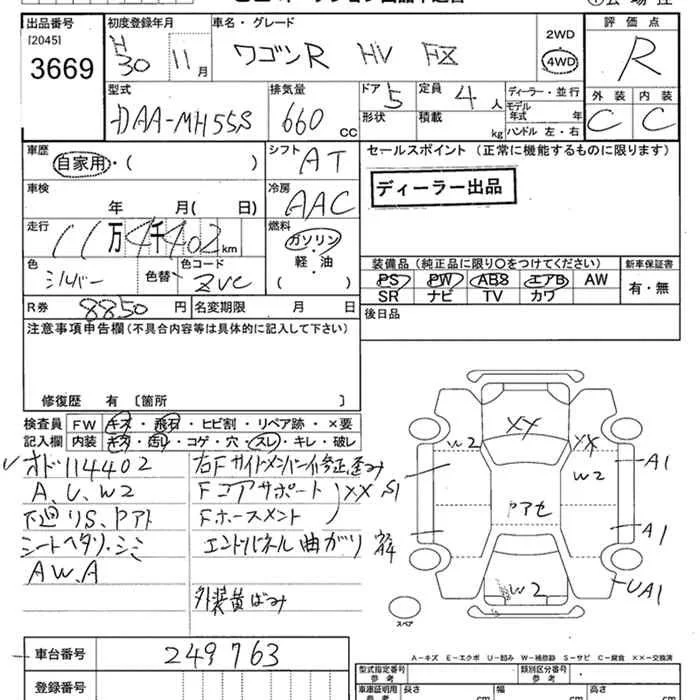 出品番号
[2045]
3669
初度登録年月
H
30 11月
車名・グレード
ワゴンR HV FX
2WD
4WD
評価点
R
型式
DAA-MH55S
排気量
660 cc
ドア
5
形状
定員
4人
積載
kg
ディーラー・並行
モデル
年式 年
ハンドル 左・右
外装 内装
C C
車歴
自家用・( )
シフト
AT
セールスポイント(正常に機能するものに限ります)
ディーラー出品
車検
年 月( 日)
冷房
AAC
走行
11万4千402km
燃料
ガソリン
軽・油
( )
色
シルバー
色替
色コード
ZVC
装備品(純正品に限り〇をつけてください)
PS PW ABS エアB AW
SR ナビ TV カワ
新車保証書
有・無
R券 8850円
名変期限 月 日
後日品
注意事項申告欄(不具合内容等は具体的に記入して下さい)
修復歴 有 [箇所 ]
検査員
記入欄
FW キズ・飛石・ヒビ割・リペア跡・×要
内装 キズ・汚レ・コゲ・穴・スレ・キレ・破レ
オド114402
A、U、W2
下廻りS、Pアト
シートヘタリ・シミ
AW.A
右Fサイドメンバー修正歪み
Fコアサポート
Fホースメント
XX
エンドパネル曲がり
外装黄ばみ
W2
XX
XX
W2
A1
S1
Pアセ
A1
W2
UA1
スペア
車台番号
249763
登録番号
A-キズ E-エクボ U-凹み W-補修跡 S-サビ C-腐食 ××-交換済
型式指定番号
参考
類別区分番号
参考
車庫証明用
参考
長さ
cm
幅
cm
高さ
cm